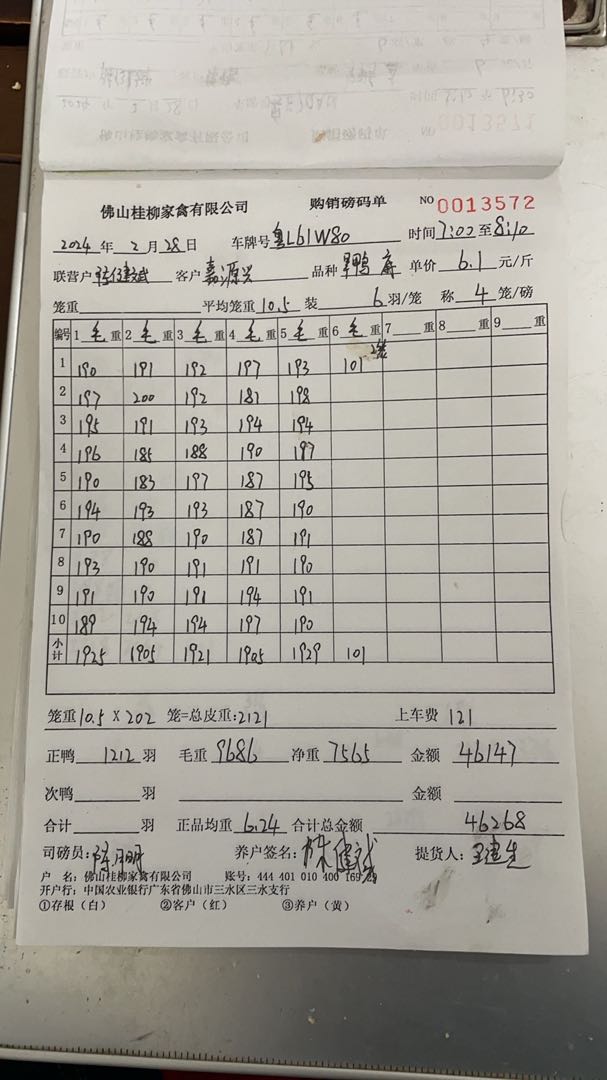 佛山桂柳家禽有限公司 购销磅码单 NO 0013572
2024 年 2 月 28 日 车牌号 粤L61W80 时间 7:00 至 8:10
联营户 客户 嘉源兴 品种 单价 6.1 元/斤
笼重 平均笼重 10.5 装 6 羽/笼 称 4 笼/磅
编号 1 毛 重 2 毛 重 3 毛 重 4 毛 重 5 毛 重 6 毛 重 7 重 8 重 9 重
1 190 191 192 197 193 101
2 197 200 192 187 198
3 195 191 193 194 194
4 196 185 188 190 197
5 190 183 197 187 195
6 194 193 193 187 190
7 190 188 190 187 191
8 193 190 191 191 190
9 191 190 191 194 191
10 189 194 194 197 190
小计 1925 1905 1921 1905 1929 101
笼重 10.5 X 202 笼=总皮重:2121 上车费 121
正鸭 1212 羽 毛重 9686 净重 7565 金额 46147
次鸭 羽 金额
合计 羽 正品均重 6.24 合计总金额 46268
司磅员: 养户签名: 提货人:
户 名: 佛山桂柳家禽有限公司 账号: 444 401 010 400 169
开户行: 中国农业银行广东省佛山市三水区三水支行
①存根（白） ②客户（红） ③养户（黄）